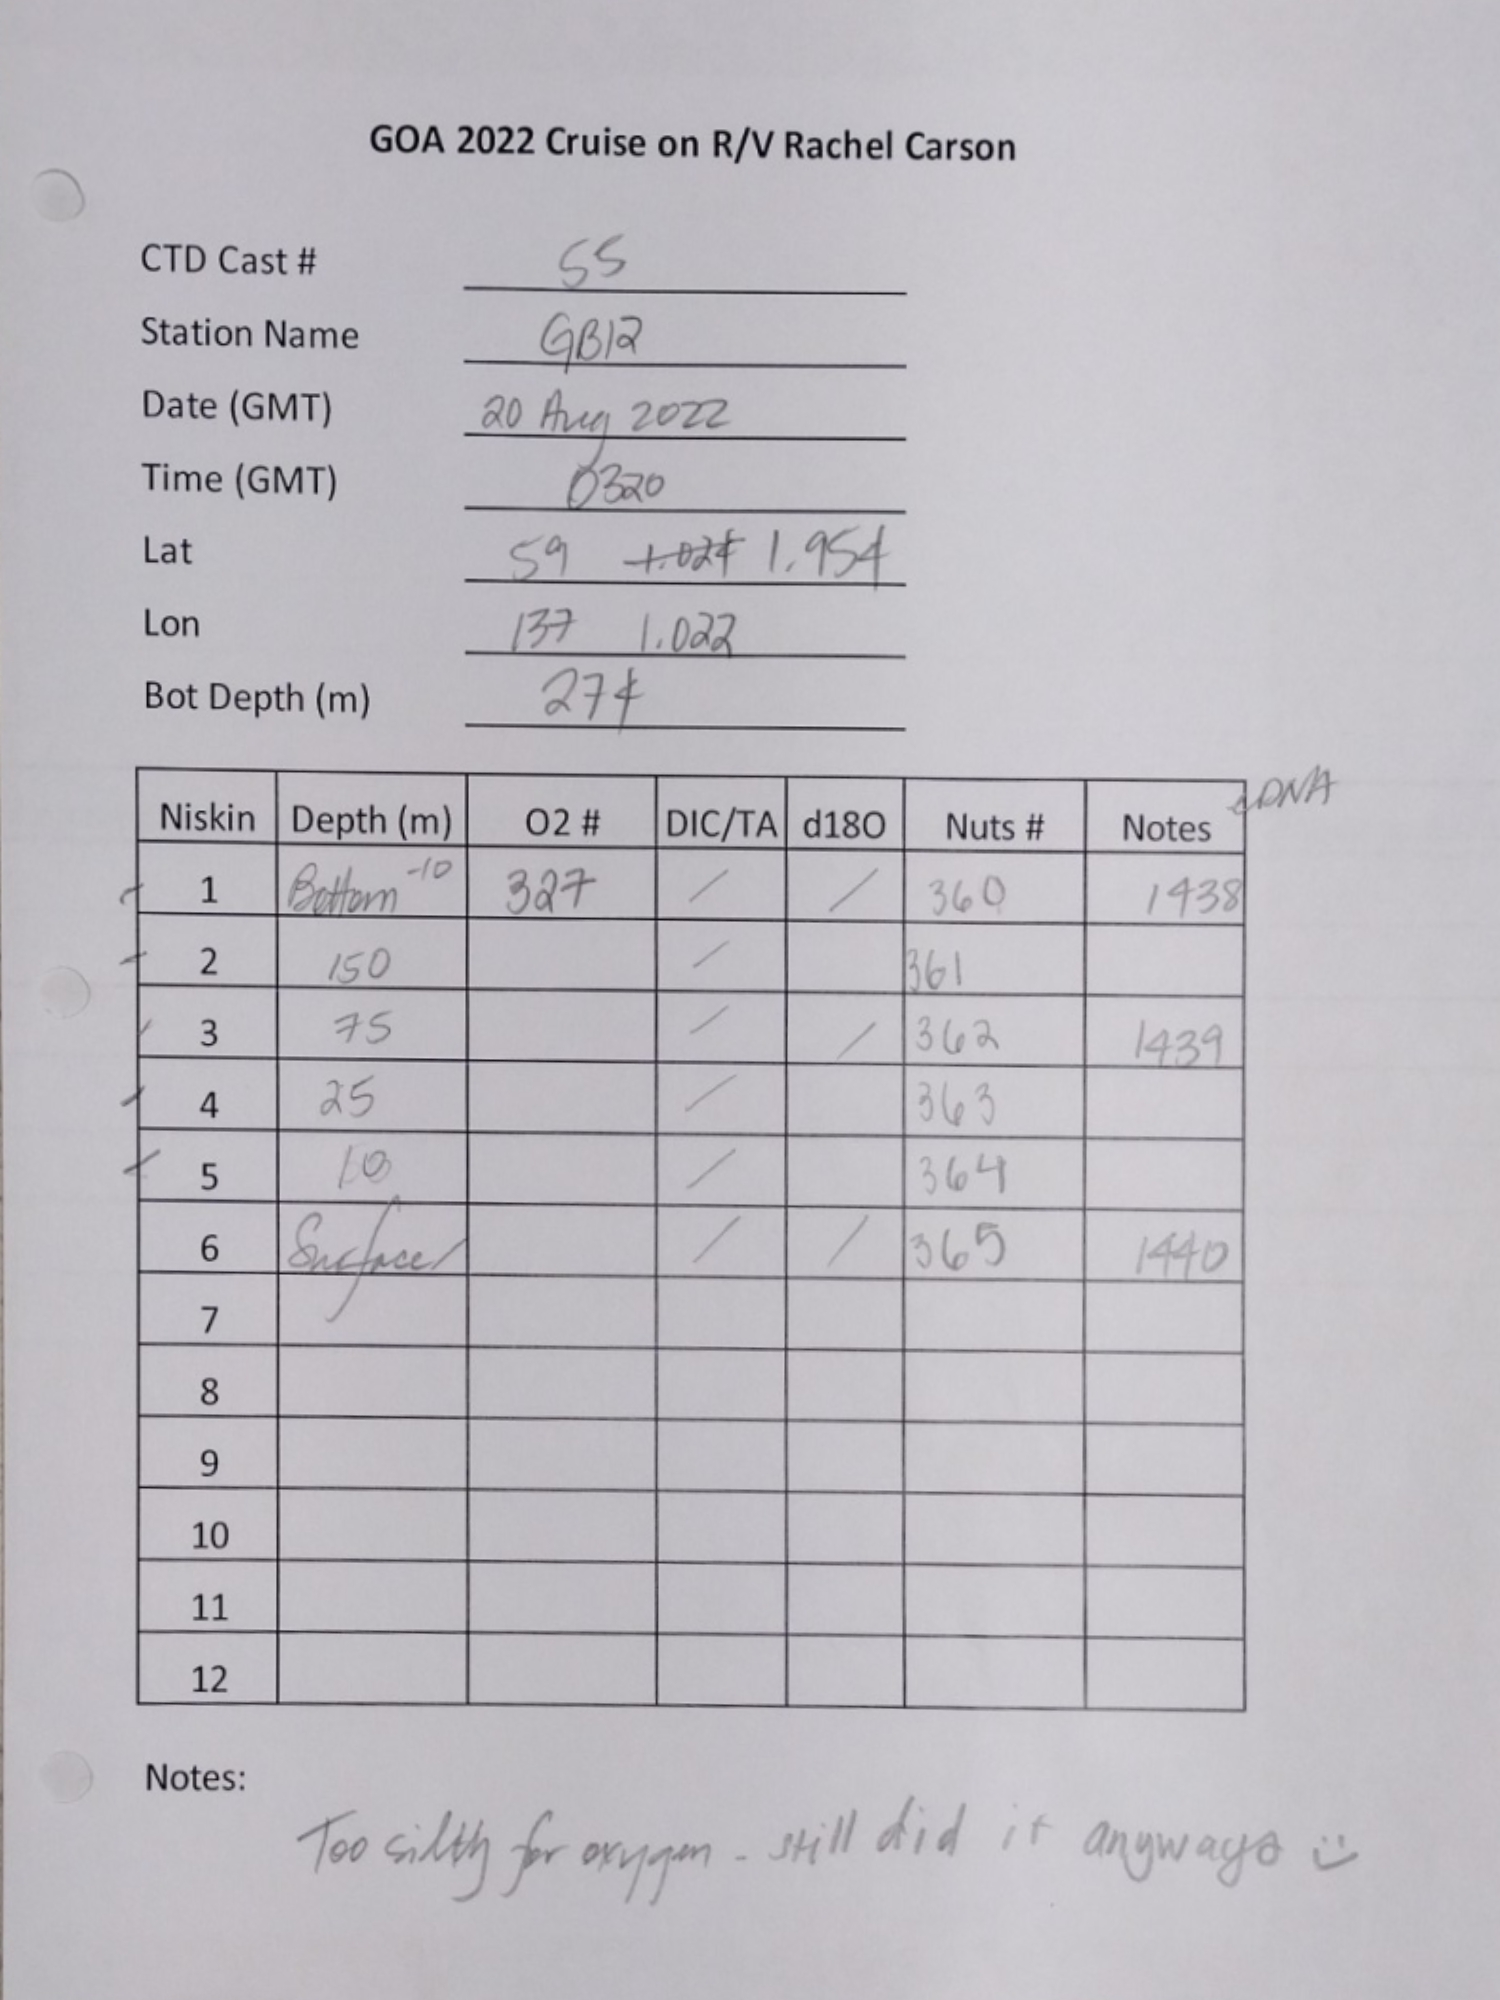 GOA 2022 Cruise on R/V Rachel Carson
CTD Cast # 55
Station Name GB12
Date (GMT) 20 Aug 2022
Time (GMT) 0320
Lat 59 1.024 1.954
Lon 137 1.022
Bot Depth (m) 274
Niskin Depth (m) O2 # DIC/TA d18O Nuts # Notes eDNA
1 Bottom -10 327 / / 360 1438
2 150 / 361
3 75 / / 362 1439
4 25 / 363
5 10 / 364
6 Surface / / 365 1440
7
8
9
10
11
12
Notes:
Too silty for oxygen - still did it anyways :)